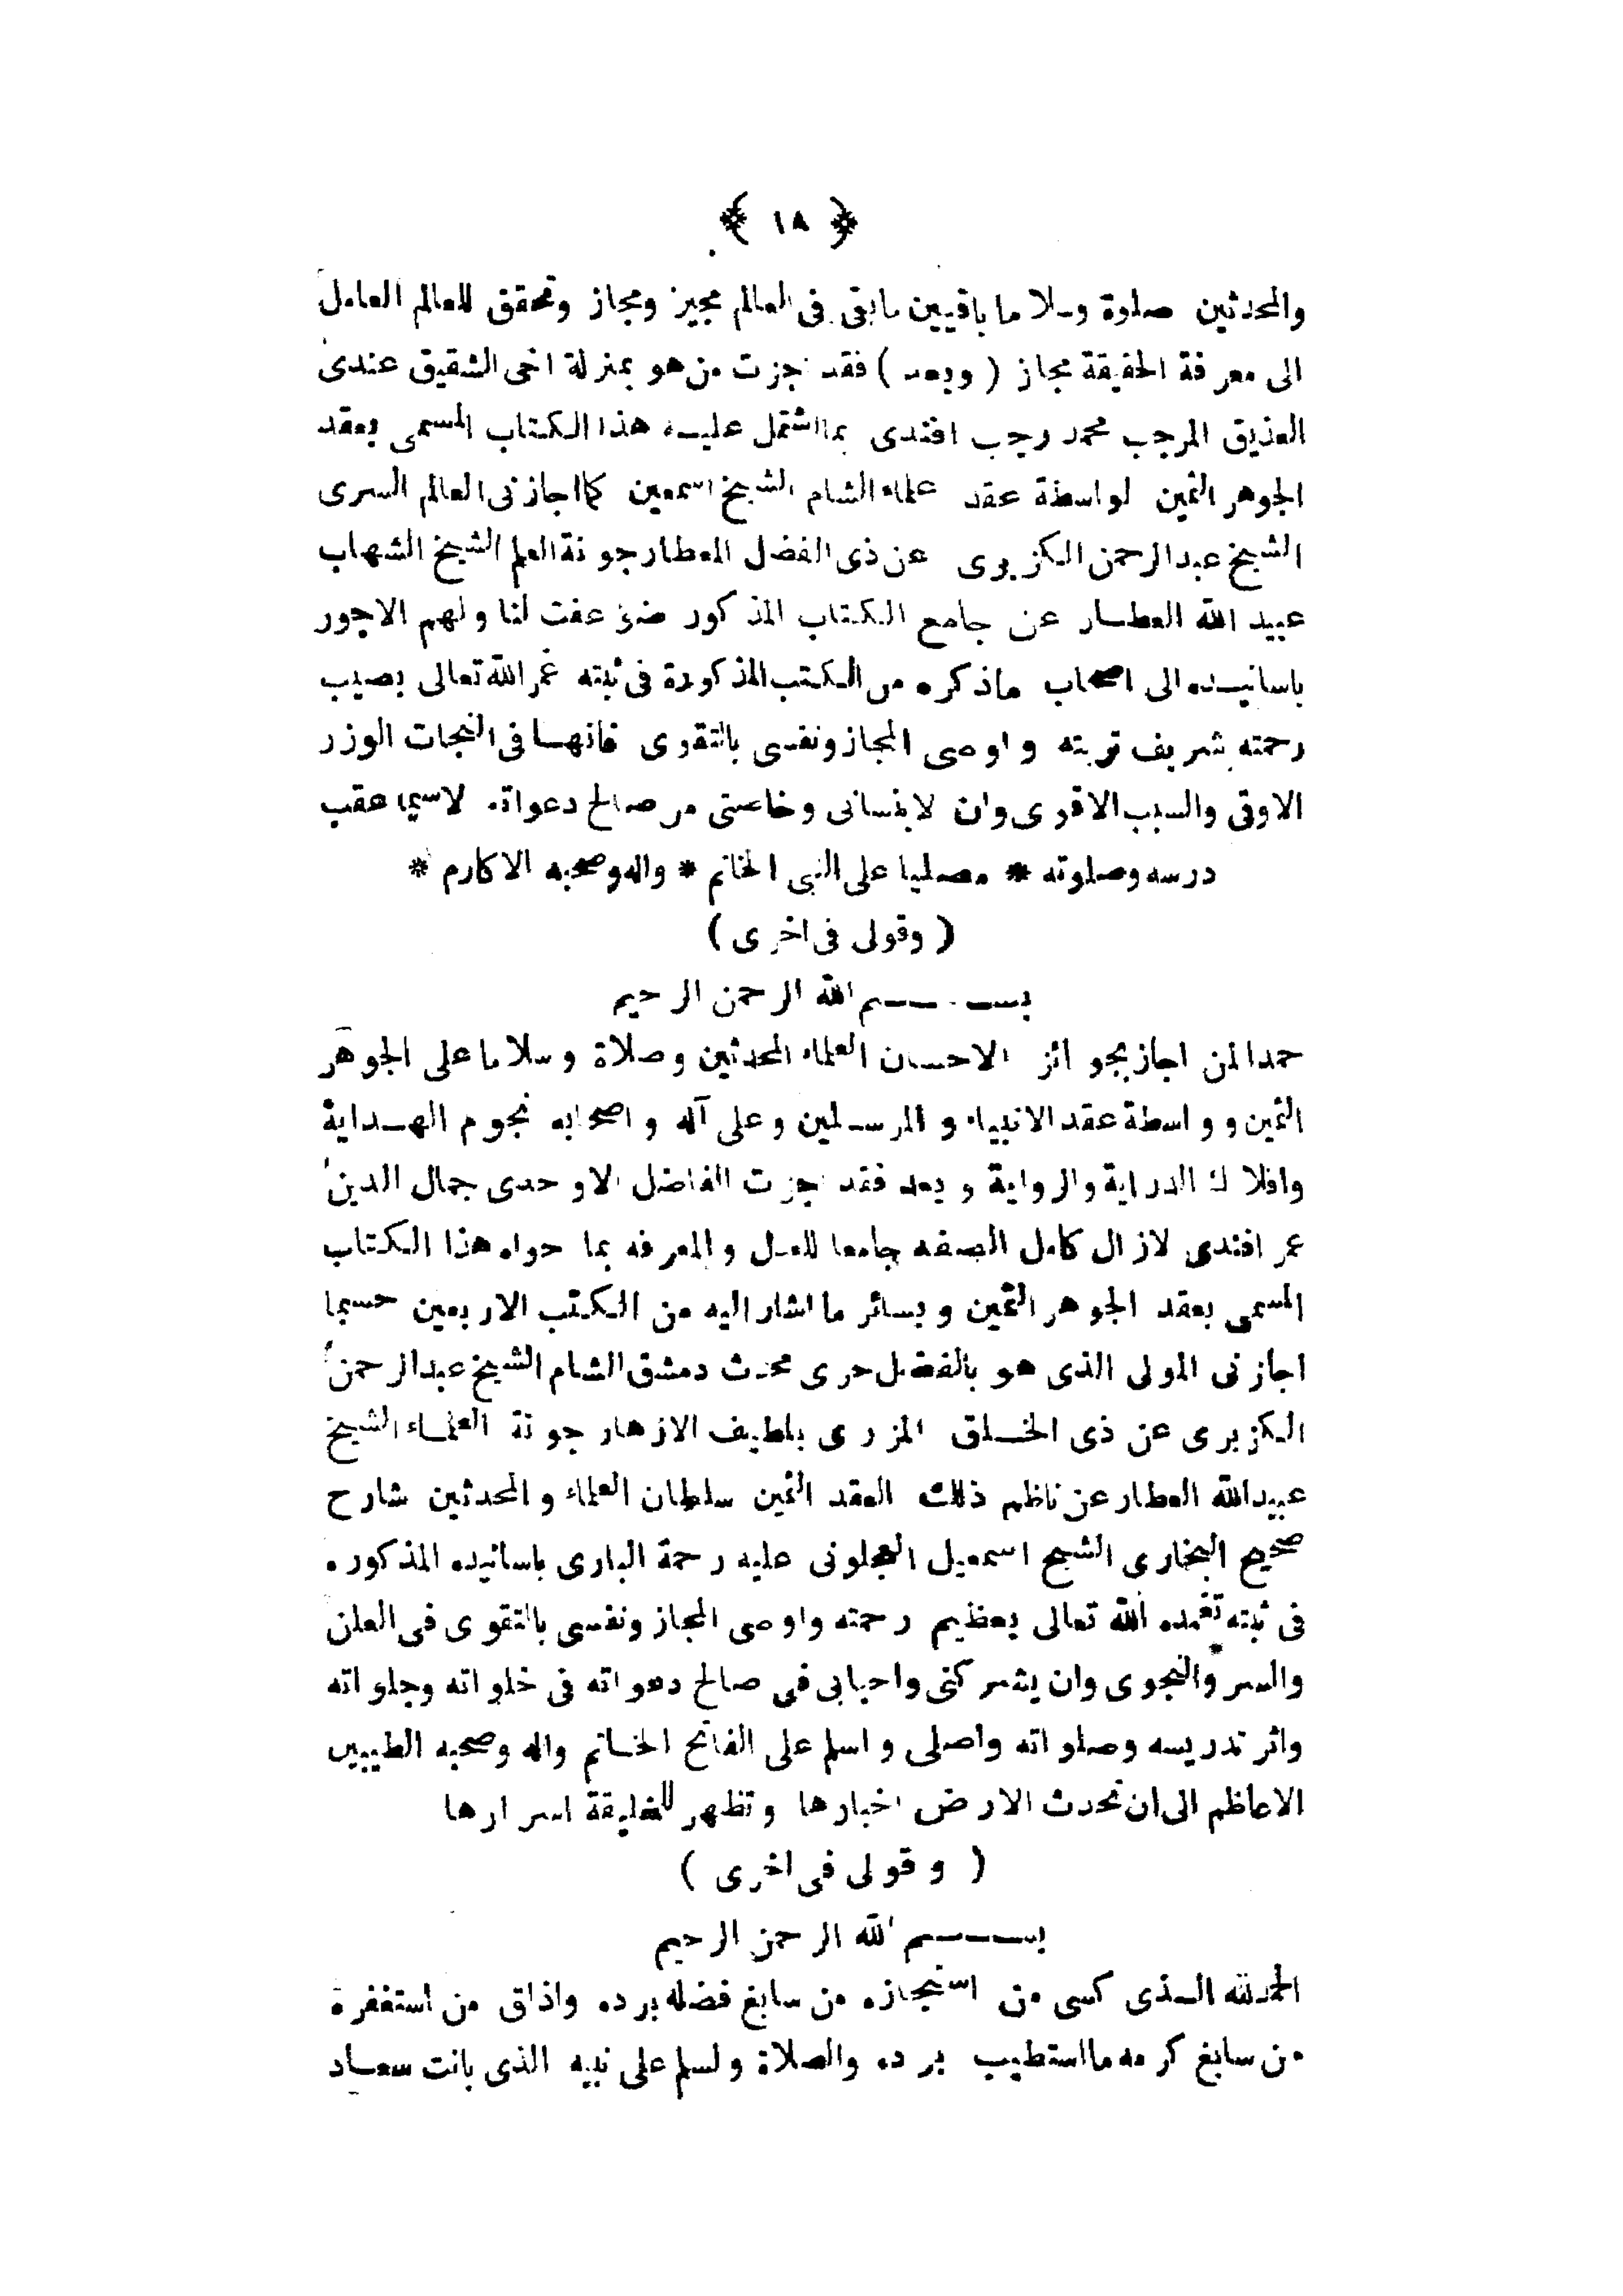 ﴿ ١٨ ﴾
والمحدثين صلوة وسلاما باقيين مابقى فى العالم مجيز ومجاز وتحقق للعالم العامل
الى معرفة الحقيقة مجاز ( وبعد ) فقد اجزت من هو بمنزلة اخى الشقيق عندى
العذيق المرجب محمد رجب افندى بما اشتمل عليه هذا الكتاب المسمى بعقد
الجوهر الثمين لواسطة عقد علماء الشام الشيخ اسمعين كما اجازنى العالم السرى
الشيخ عبدالرحمن الكزبرى عن ذى الفضل المعطار جونة العلم الشيخ الشهاب
عبيد الله العطار عن جامع الكتاب المذكور ضوعفت لنا ولهم الاجور
باسانيده الى اصحاب ماذكره من الكتب المذكورة فى ثبته غمر الله تعالى بصيب
رحمته شريف تربته واوصى المجاز ونفسى بالتقوى فانها فى النجات الوزر
الاوقى والسبب الاقوى وان لاينسانى وخاصتى من صالح دعواته لاسيما عقب
درسه وصلوته * مصليا على النبى الخاتم * واله وصحبه الاكارم *
( وقولى فى اخرى )
بسم الله الرحمن الرحيم
حمدا لمن اجاز بجوائز الاحسان العلماء المحدثين وصلاة وسلاما على الجوهر
الثمين وواسطة عقد الانبياء والمرسلين وعلى آله واصحابه نجوم الهداية
وافلاك الدراية والرواية وبعد فقد اجزت الفاضل الاوحدى جمال الدين
عمر افندى لازال كامل الصفه جامعا للعمل والمعرفه بما حواه هذا الكتاب
المسمى بعقد الجوهر الثمين وبسائر ما اشار اليه من الكتب الاربعين حسبما
اجازنى المولى الذى هو بالفضل حرى محدث دمشق الشام الشيخ عبدالرحمن
الكزبرى عن ذى الخلق المزرى بلطيف الازهار جونة العلماء الشيخ
عبيدالله العطار عن ناظم ذلك العقد الثمين سلطان العلماء والمحدثين شارح
صحيح البخارى الشيخ اسمعيل العجلونى عليه رحمة البارى باسانيده المذكوره
فى ثبته تغمده الله تعالى بعظيم رحمته واوصى المجاز ونفسى بالتقوى فى العلن
والسر والنجوى وان يشركنى واحبابى فى صالح دعواته فى خلواته وجلواته
واثر تدريسه وصلواته واصلى واسلم على الفاتح الخاتم واله وصحبه الطيبين
الاعاظم الى ان تحدث الارض اخبارها وتظهر للخليقة اسرارها
( وقولى فى اخرى )
بسم الله الرحمن الرحيم
الحمدلله الذى كسى من استجازه من سابغ فضله برده واذاق من استغفره
من سابغ كرمه ما استطيب برده والصلاة ولسلم على نبيه الذى بانت سعاد